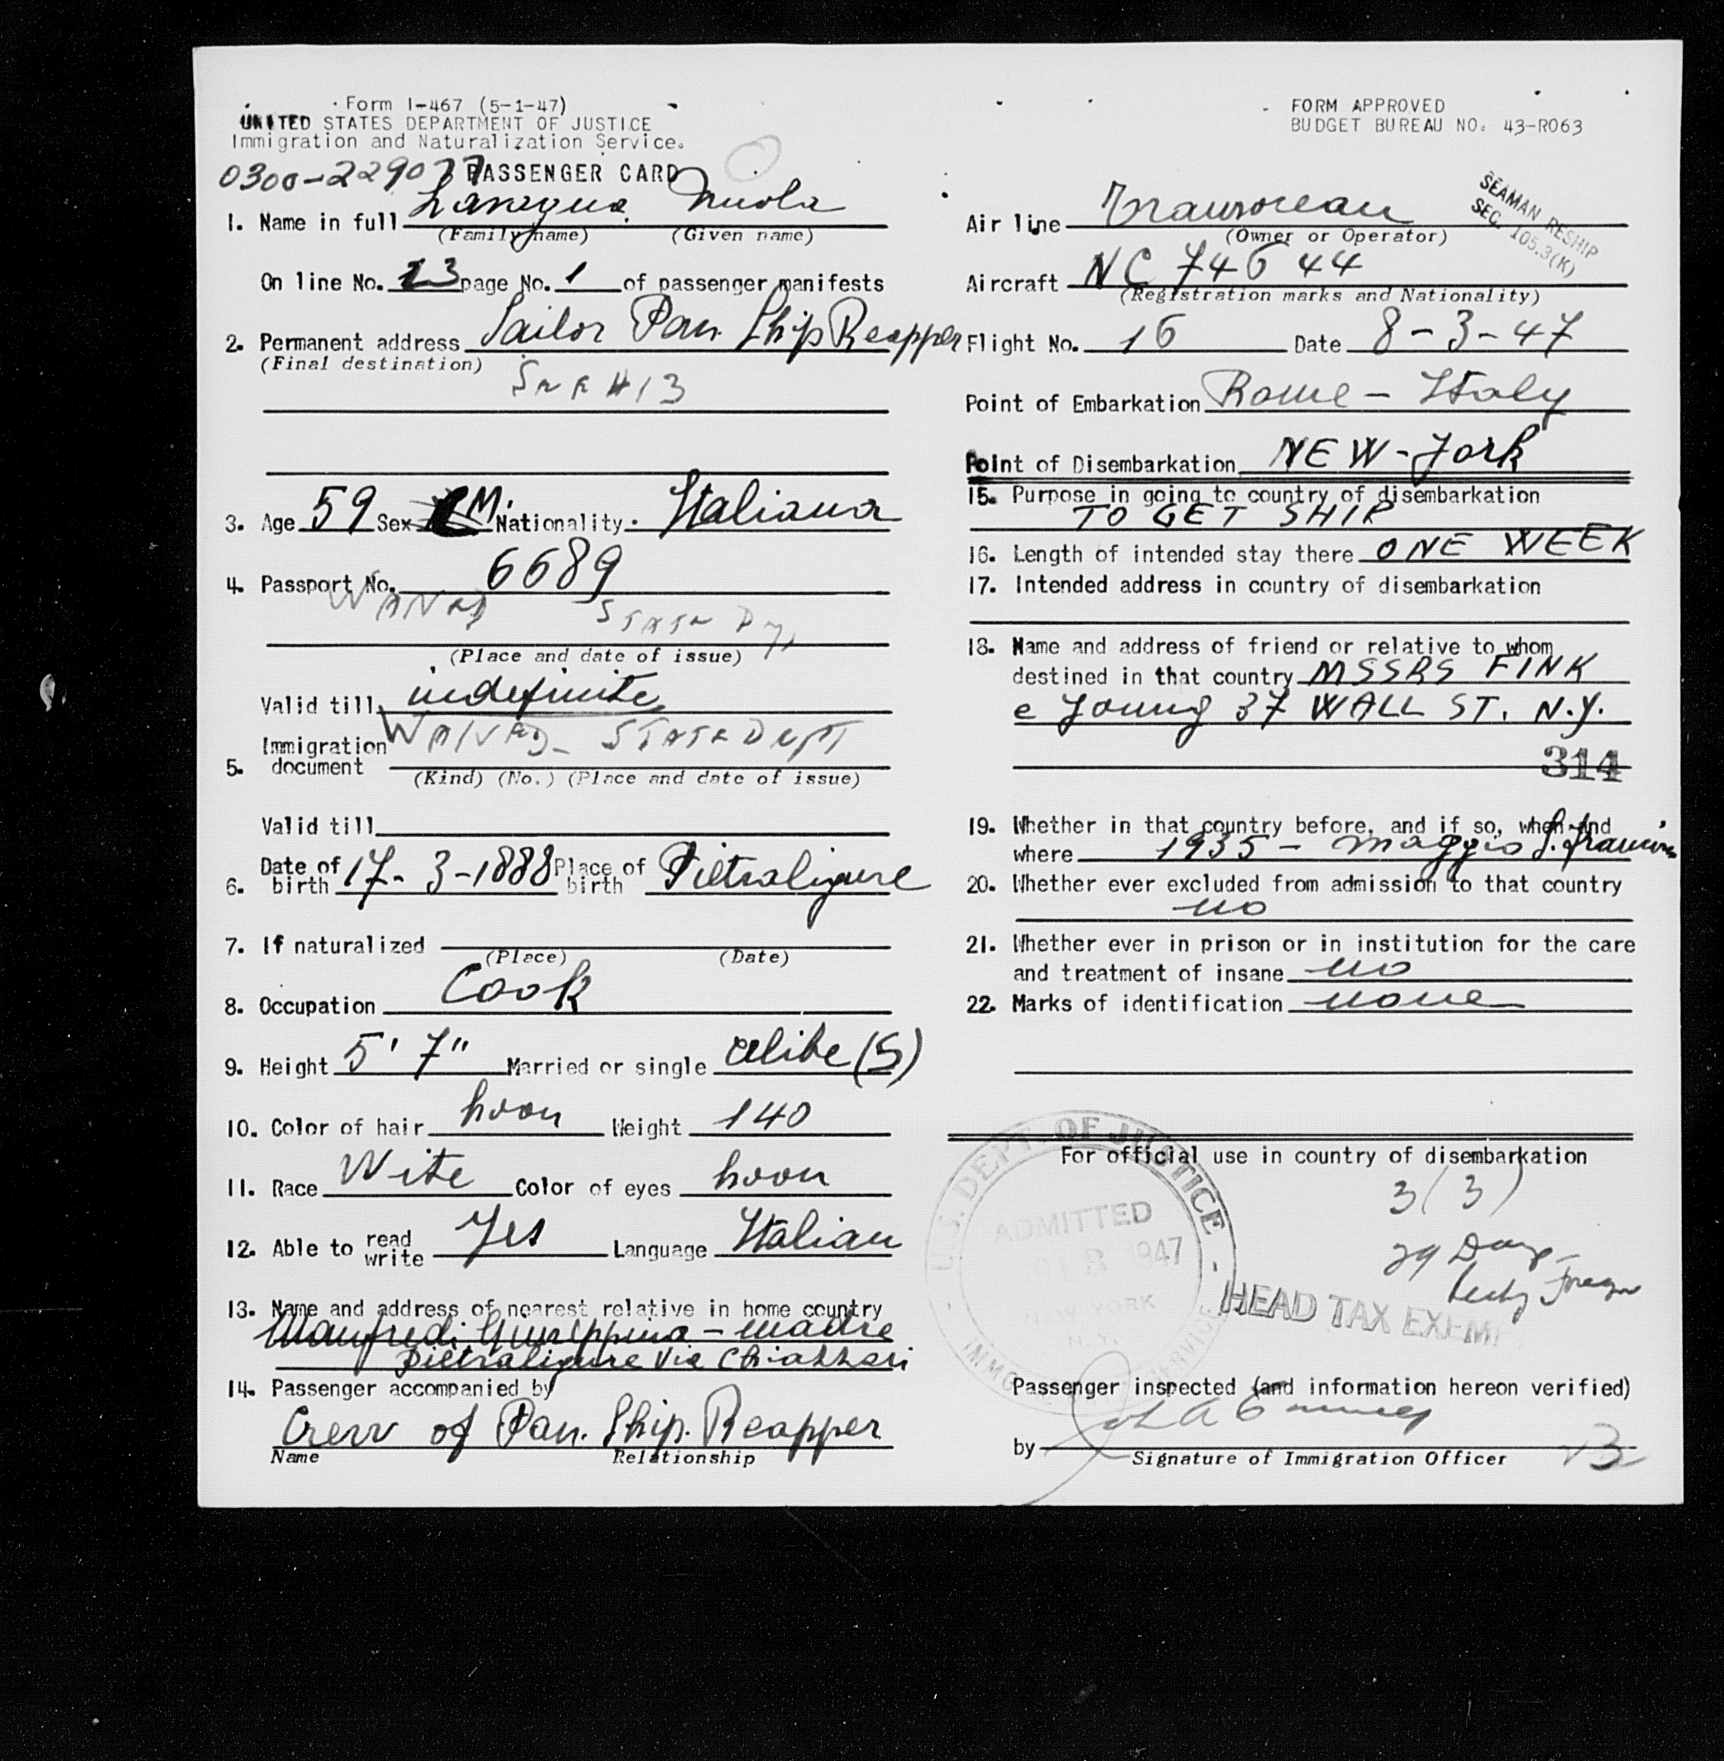 Form I-467 (5-1-47)
UNITED STATES DEPARTMENT OF JUSTICE
Immigration and Naturalization Service.
0300-229077 PASSENGER CARD
1. Name in full
(Family name) (Given name)
On line No. 13 page No. 1 of passenger manifests
2. Permanent address Sailor Pan. Ship Reapper
(Final destination)
3. Age 59 Sex M. Nationality. Italiana
4. Passport No. 6689
WAIVED STATE
(Place and date of issue)
Valid till indefinite
5. Immigration document WAIVED - STATE DEPT
(Kind) (No.) (Place and date of issue)
Valid till
6. Date of birth 17-3-1888 Place of birth Pietraligure
7. If naturalized
(Place) (Date)
8. Occupation Cook
9. Height 5' 7" Married or single celibe (S)
10. Color of hair Weight 140
11. Race Wite Color of eyes
12. Able to read write Yes Language Italian
13. Name and address of nearest relative in home country
Manfredi Giuseppina - madre
Pietraligure Via Chiazzari
14. Passenger accompanied by
Crew of Pan. Ship. Reapper
Name Relationship
FORM APPROVED
BUDGET BUREAU NO. 43-R063
SEAMAN RESHIP
SEC. 105.3(K)
Air line
(Owner or Operator)
Aircraft NC 74644
(Registration marks and Nationality)
Flight No. 16 Date 8-3-47
Point of Embarkation Rome - Italy
Point of Disembarkation NEW-York
15. Purpose in going to country of disembarkation
TO GET SHIP
16. Length of intended stay there ONE WEEK
17. Intended address in country of disembarkation
18. Name and address of friend or relative to whom
destined in that country MSSRS FINK
e Young 37 WALL ST. N.Y.
314
19. Whether in that country before, and if so, when and
where 1935 - Maggio
20. Whether ever excluded from admission to that country
no
21. Whether ever in prison or in institution for the care
and treatment of insane no
22. Marks of identification none
For official use in country of disembarkation
3(3)
29 Days
U.S. DEPT. OF JUSTICE
ADMITTED
1947
NEW YORK
N.Y.
HEAD TAX EXEM
Passenger inspected (and information hereon verified)
by
Signature of Immigration Officer